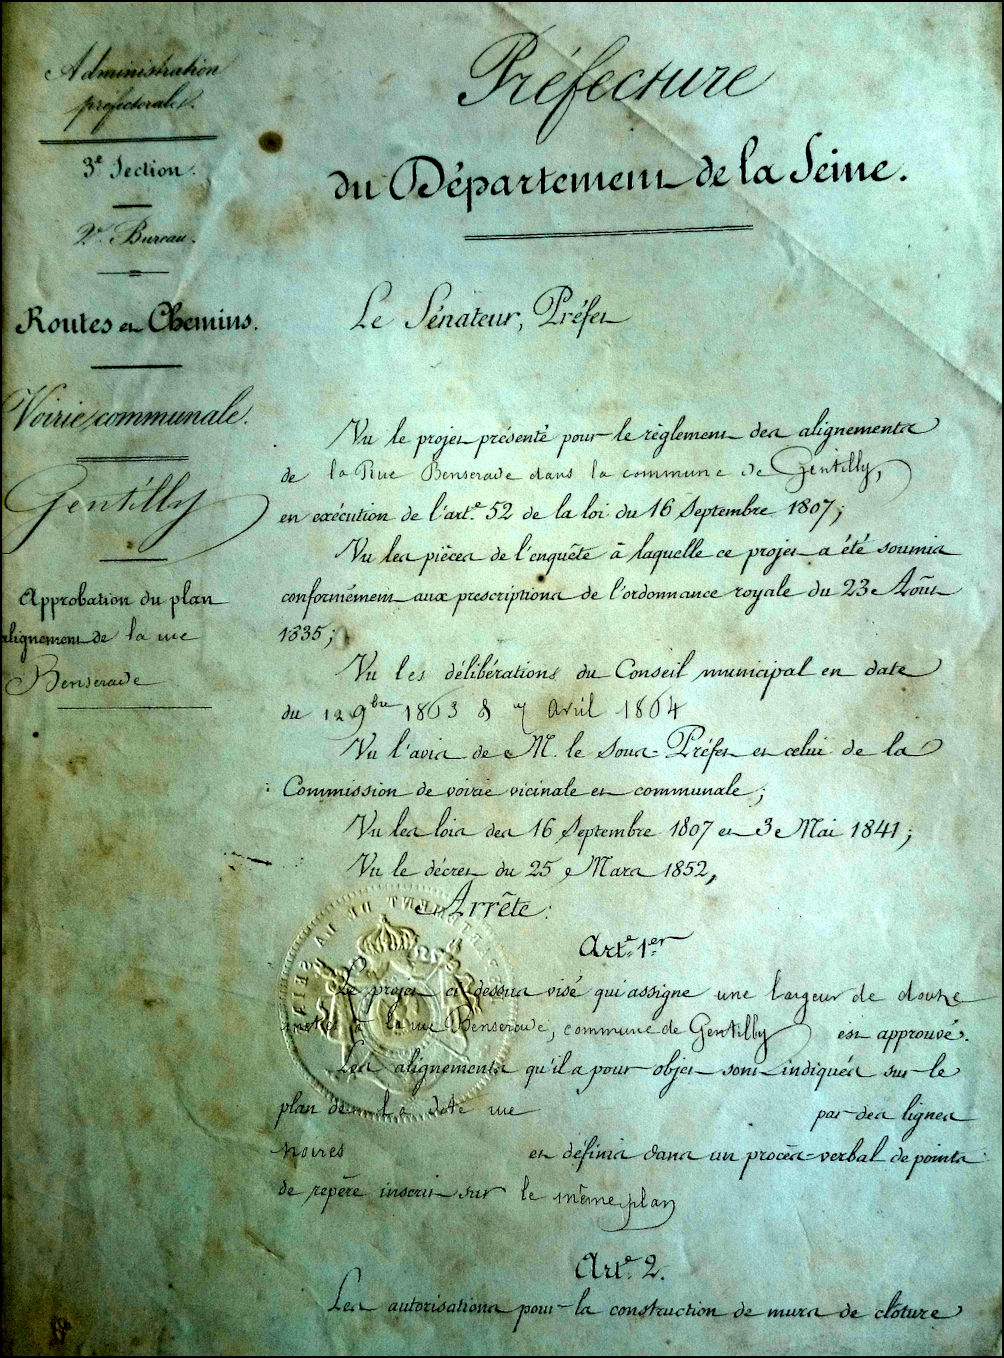 Administration
préfectorale.
3e Section.
2e Bureau.
Routes et Chemins.
Voirie communale.
Gentilly
Approbation du plan
alignement de la rue
Benserade
Préfecture
du Département de la Seine.
Le Sénateur, Préfet
Vu le projet présenté pour le règlement des alignements
de la Rue Benserade dans la commune de Gentilly,
en exécution de l'arte. 52 de la loi du 16 Septembre 1807;
Vu les pièces de l'enquête à laquelle ce projet a été soumis
conformément aux prescriptions de l'ordonnance royale du 23 Août
1835;
Vu les délibérations du Conseil municipal en date
du 12 9bre 1863 & 7 Avril 1864
Vu l'avis de M. le Sous-Préfet et celui de la
Commission de voirie vicinale et communale;
Vu les lois des 16 Septembre 1807 et 3 Mai 1841;
Vu le décret du 25 Mars 1852,
Arrête:
DEPARTEMENT DE LA SEINE
Arte. 1er
Le projet ci dessus visé qui assigne une largeur de douze
mètres à la rue Benserade, commune de Gentilly est approuvé.
Les alignements qu'il a pour objet sont indiqués sur le
plan de la dite rue par des lignes
noires et définis dans un procès-verbal de points
de repère inscrit sur le même plan
Arte. 2.
Les autorisations pour la construction de murs de clôture